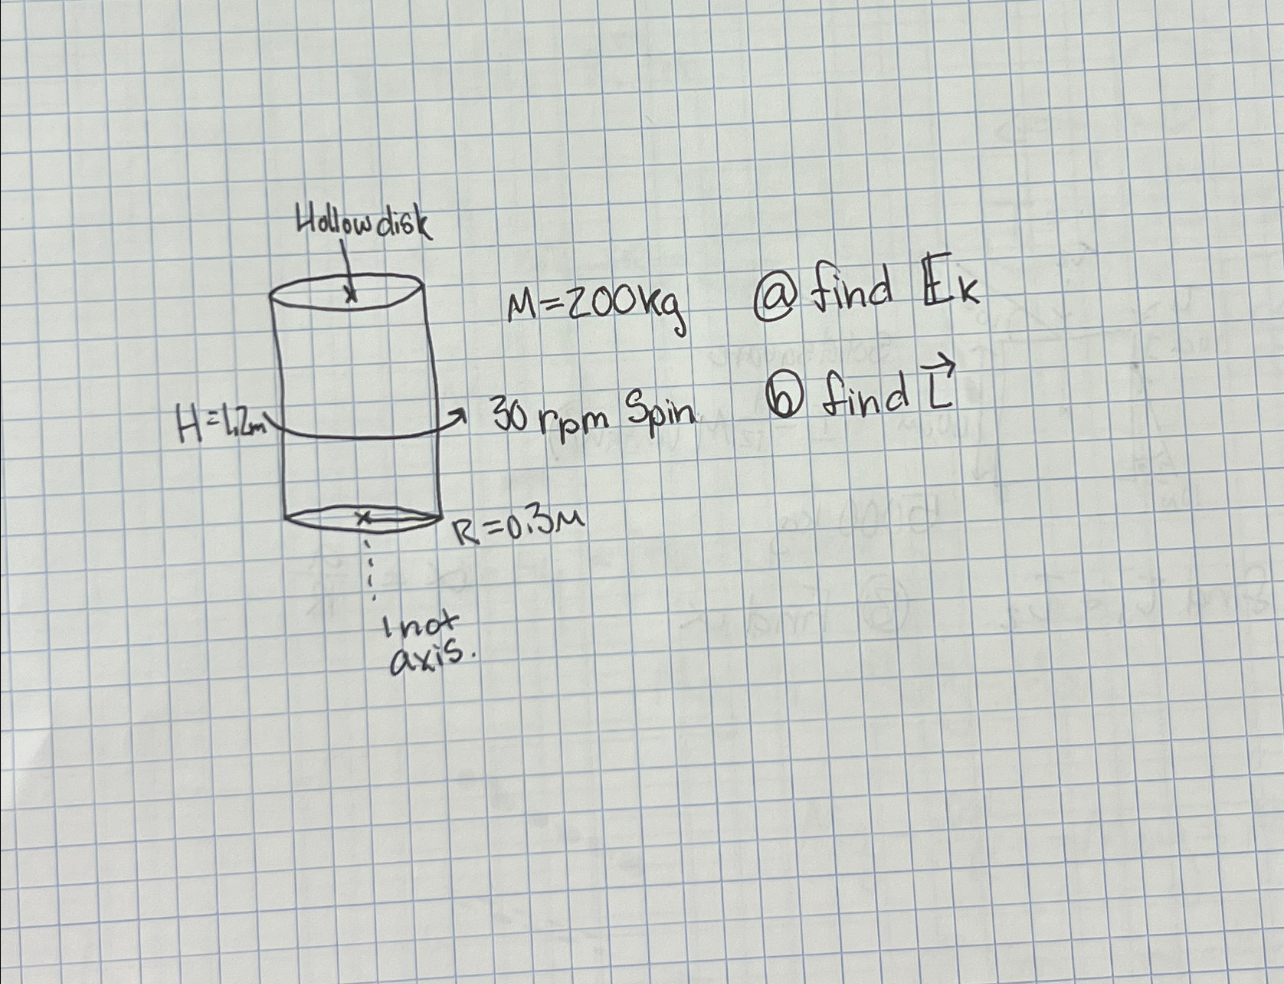 Hollow disk
M=200kg
@ find Ek
H=1.2m
30 rpm Spin
b find L
R=0.3M
1 not
axis.